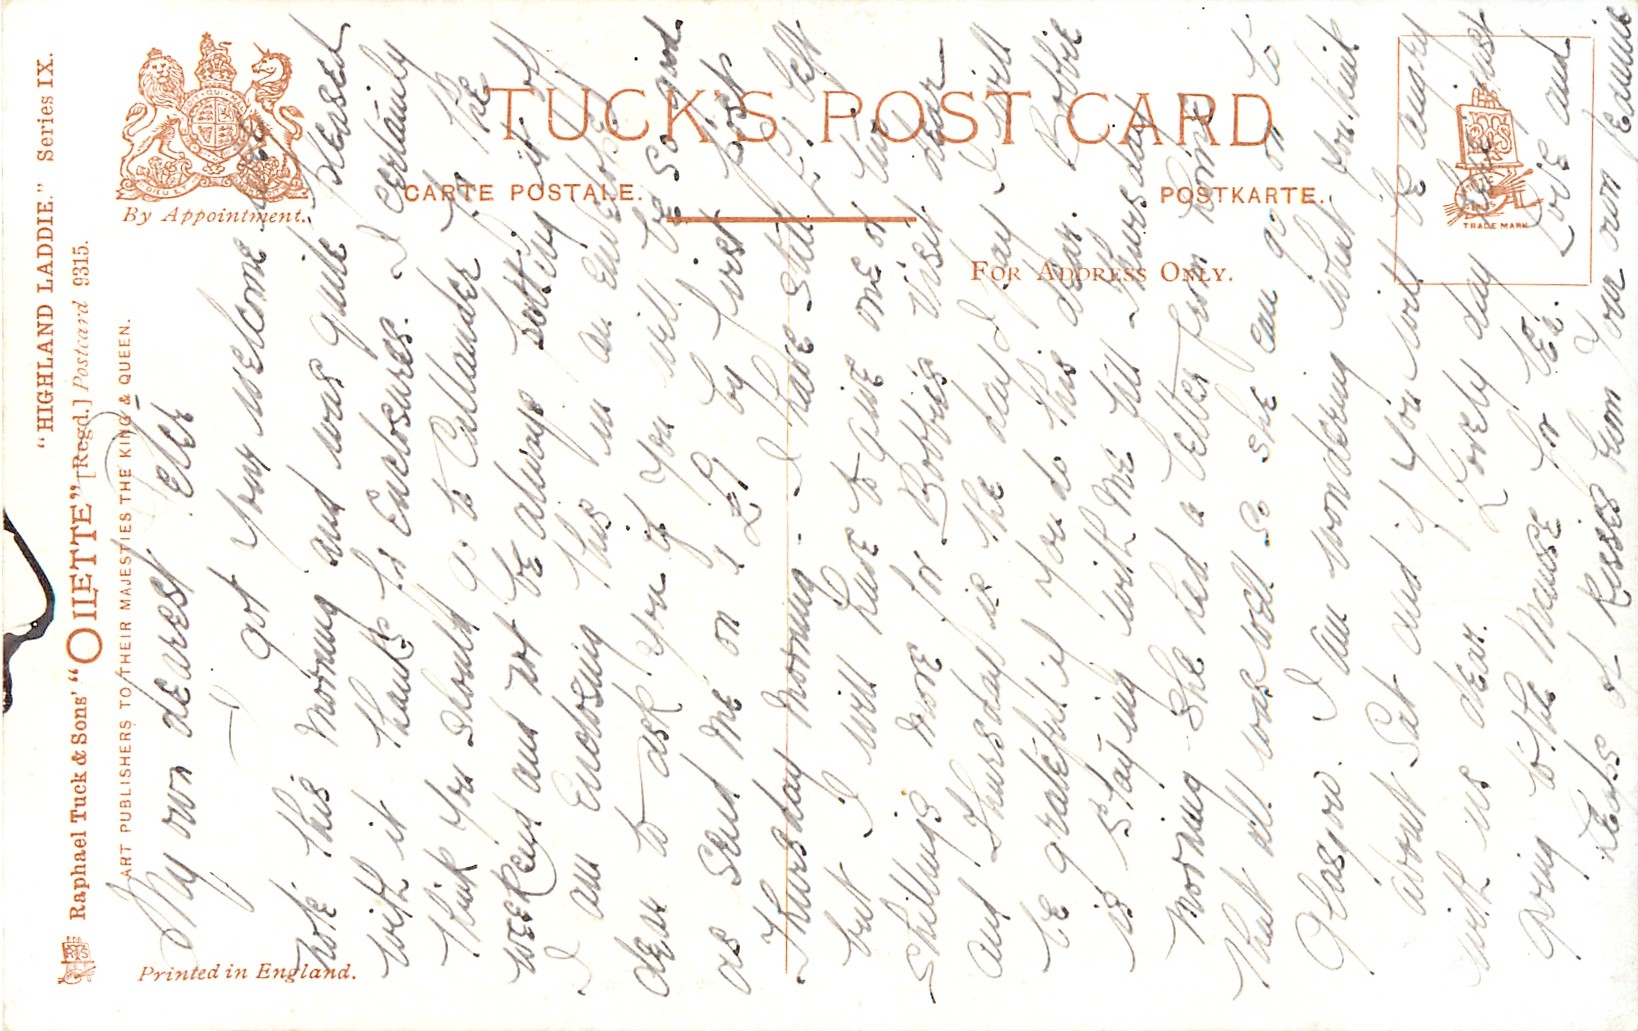 "HIGHLAND LADDIE." Series IX.
Raphael Tuck & Sons' "OILETTE" [Regd.] Postcard 9315.
ART PUBLISHERS TO THEIR MAJESTIES THE KING & QUEEN.
By Appointment.
TUCK'S POST CARD
CARTE POSTALE.
POSTKARTE.
FOR ADDRESS ONLY.
TRADE MARK
Printed in England.
My own dearest
I got your welcome
note this morning and was quite pleased
with it thanks for Enclosures. I certainly
think you should go to Callander for the
weekend and not be always sotting it off
I am Enclosing this in an Envelope
dear to ask you if you will be so good
as send me on a £1 by first post
Thursday morning - I have still £1 left
but I will have to give one or two
shillings more for Bobbie's visit dear
and Thursday is the day I pay I will
be grateful if you do this dear. Bobbie
is staying with me till Thursday
morning she had a letter from home
that all was well so she can go on to
Glasgow. I am wondering what you think
about Sat and if you will be angry
with us dear. Lovely day
going to the manse for tea. Love and
heaps of kisses from Your own Jeannie